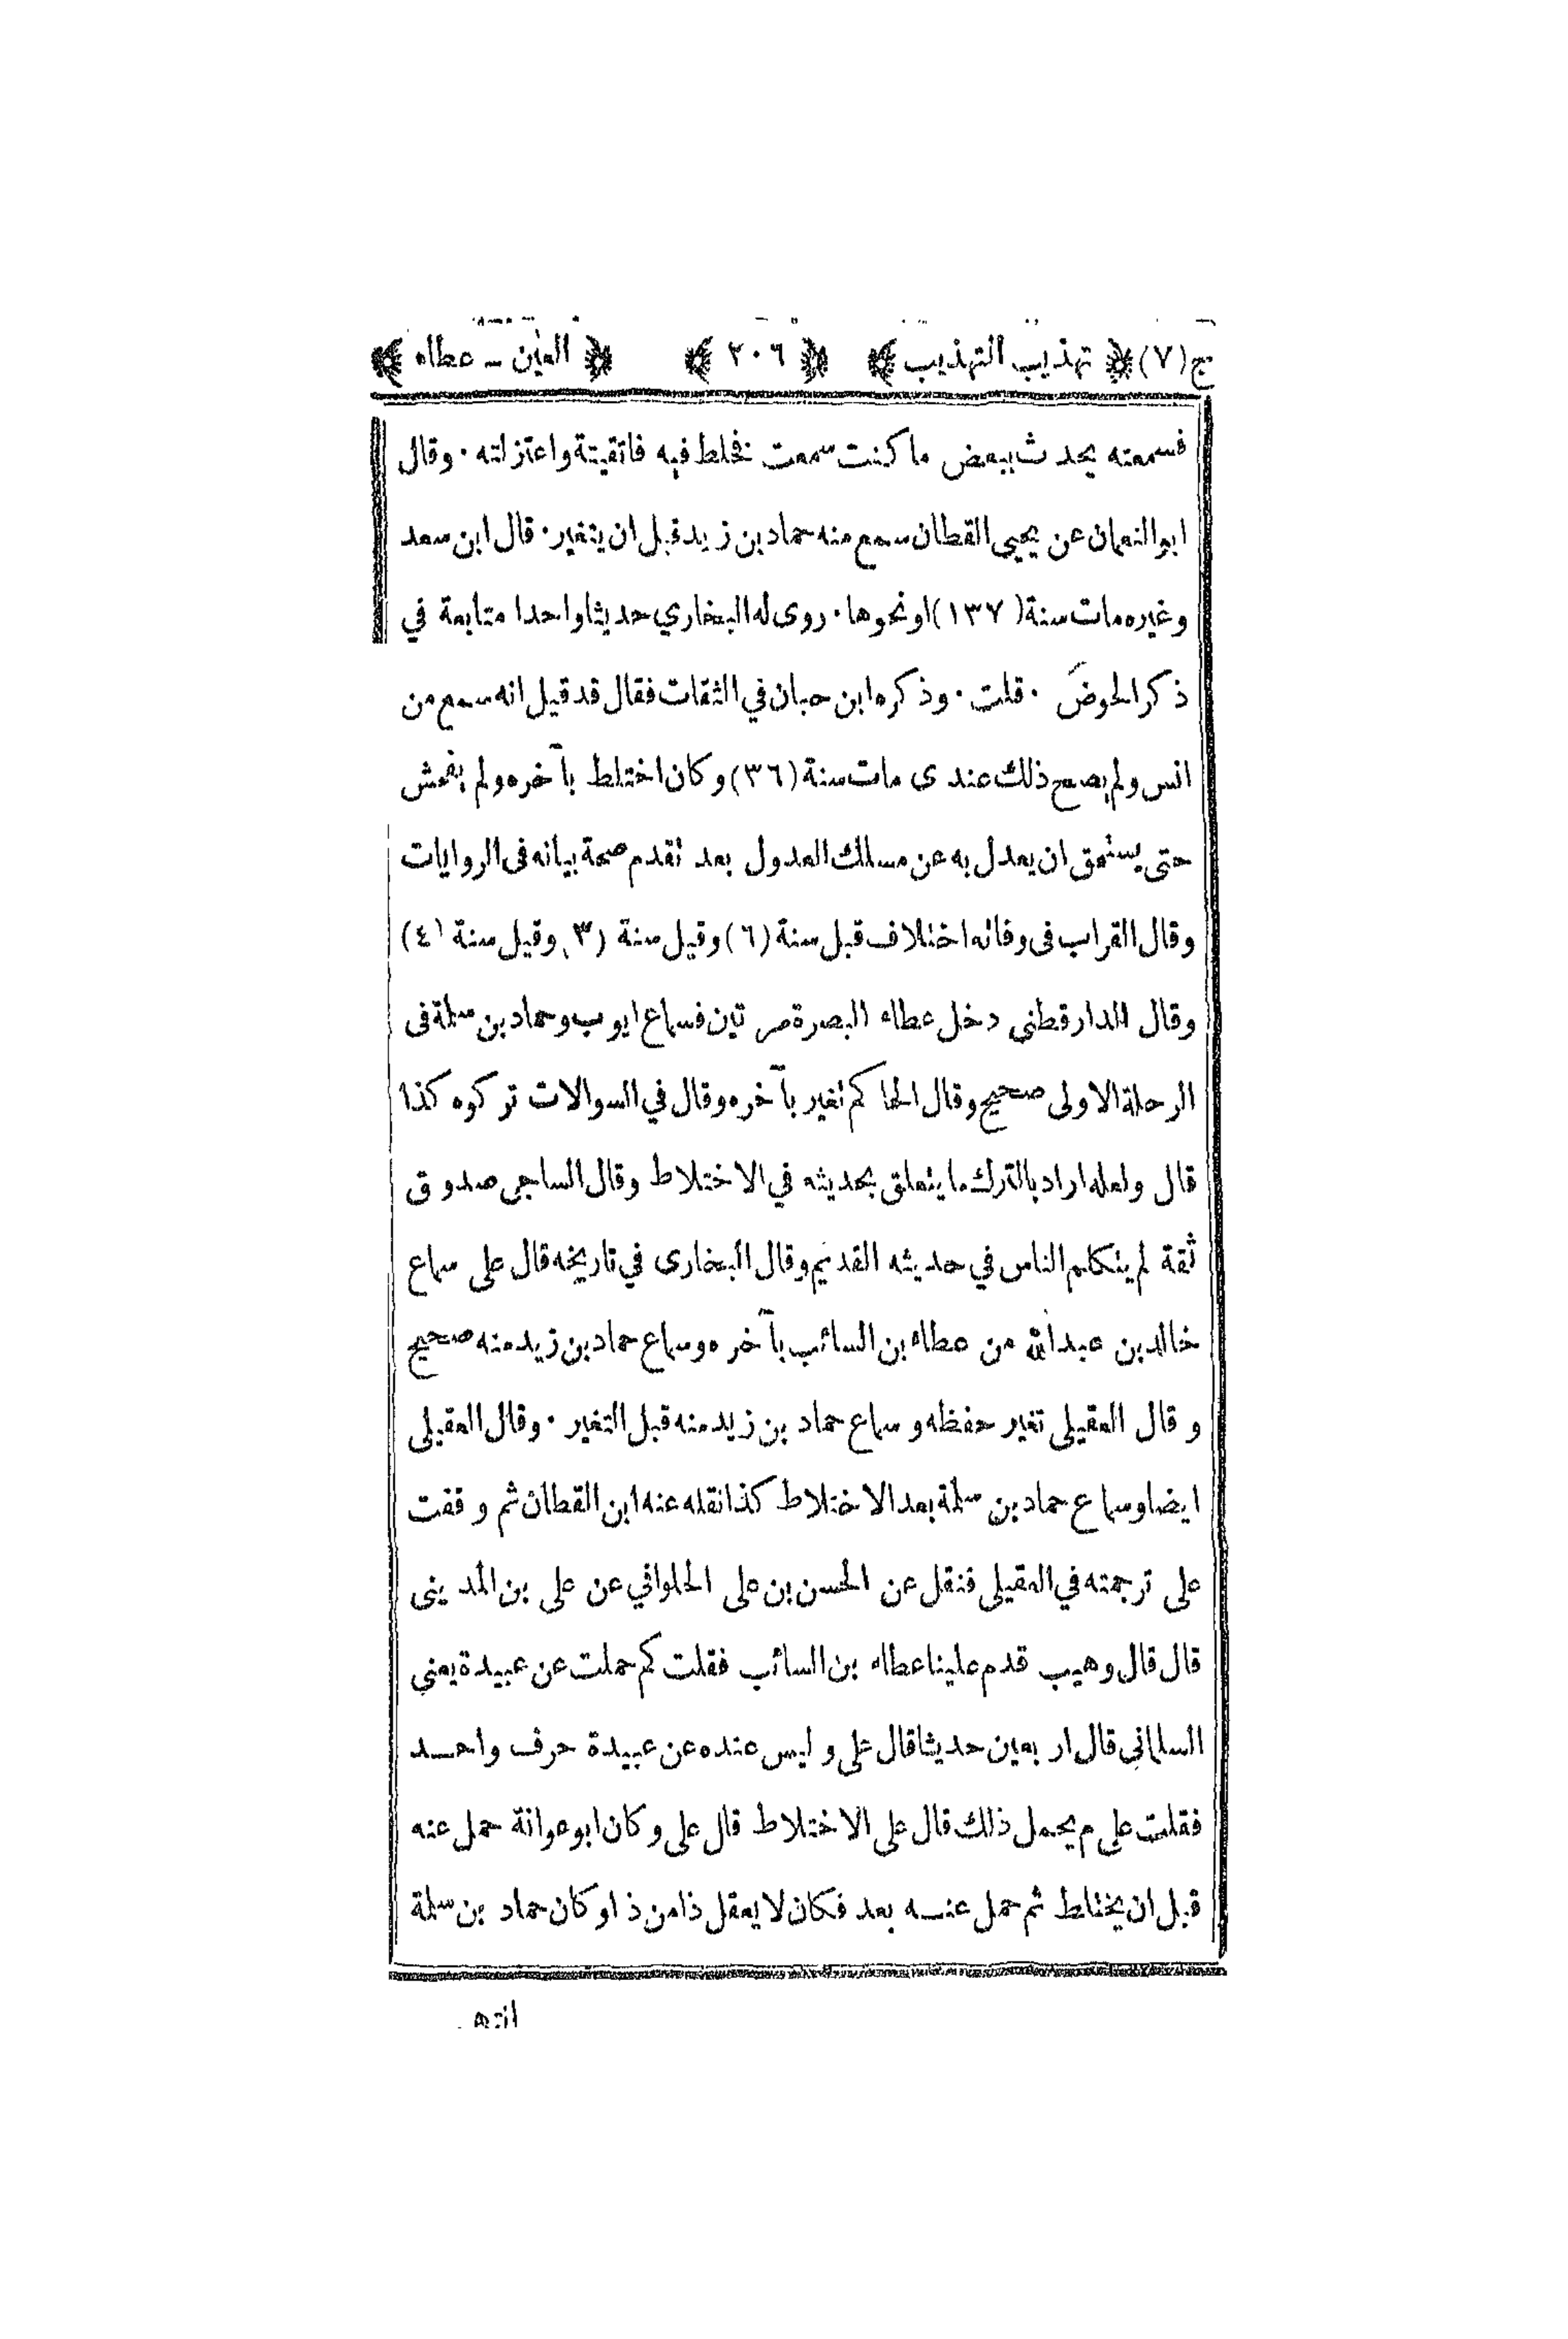 ج (٧) ﴿ تهذيب التهذيب ﴾ ﴿ ٢٠٦ ﴾ ﴿ العين - عطاء ﴾
فسمعته يحدث ببعض ما كنت سمعت فخلط فيه فاتقيتة واعتزلته . وقال
ابو النعمان عن يحيى القطان سمع منه حماد بن زيد قبل ان يتغير . قال ابن سعد
وغيره مات سنة (١٣٧) او نحوها . روى له البخاري حديثا واحدا متابعة في
ذكر الحوض . قلت . وذكره ابن حبان في الثقات فقال قد قيل انه سمع من
انس ولم يصح ذلك عندى مات سنة (٣٦) وكان اختلط بآخره ولم يفحش
حتى يستحق ان يعدل به عن مسلك العدول بعد تقدم صحة بيانه فى الروايات
وقال القراب فى وفاته اختلاف قبل سنة (٦) وقيل سنة (٣) وقيل سنة (٤)
وقال الدارقطني دخل عطاء البصرة مرتين فسماع ايوب وحماد بن سلمة فى
الرحلة الاولى صحيح وقال الحاكم تغير بآخره وقال في السوالات تركوه كذا
قال ولعله اراد بالترك ما يتعلق بحديثه في الاختلاط وقال الساجى صدوق
ثقة لم يتكلم الناس في حديثه القديم وقال البخارى في تاريخه قال على سماع
خالد بن عبدالله من عطاء بن السائب بآخره وسماع حماد بن زيد منه صحيح
وقال العقيلى تغير حفظه وسماع حماد بن زيد منه قبل التغير . وقال العقيلى
ايضا وسماع حماد بن سلمة بعد الاختلاط كذا نقله عنه ابن القطان ثم وقفت
على ترجمته في العقيلى فنقل عن الحسن بن على الحلواني عن على بن المدينى
قال قال وهيب قدم علينا عطاء بن السائب فقلت كم حملت عن عبيدة يعني
السلماني قال اربعين حديثا قال على وليس عنده عن عبيدة حرف واحد
فقلت على م يحمل ذلك قال على الاختلاط قال على وكان ابو عوانة حمل عنه
قبل ان يختلط ثم حمل عنه بعد فكان لا يعقل ذا من ذا وكان حماد بن سلمة